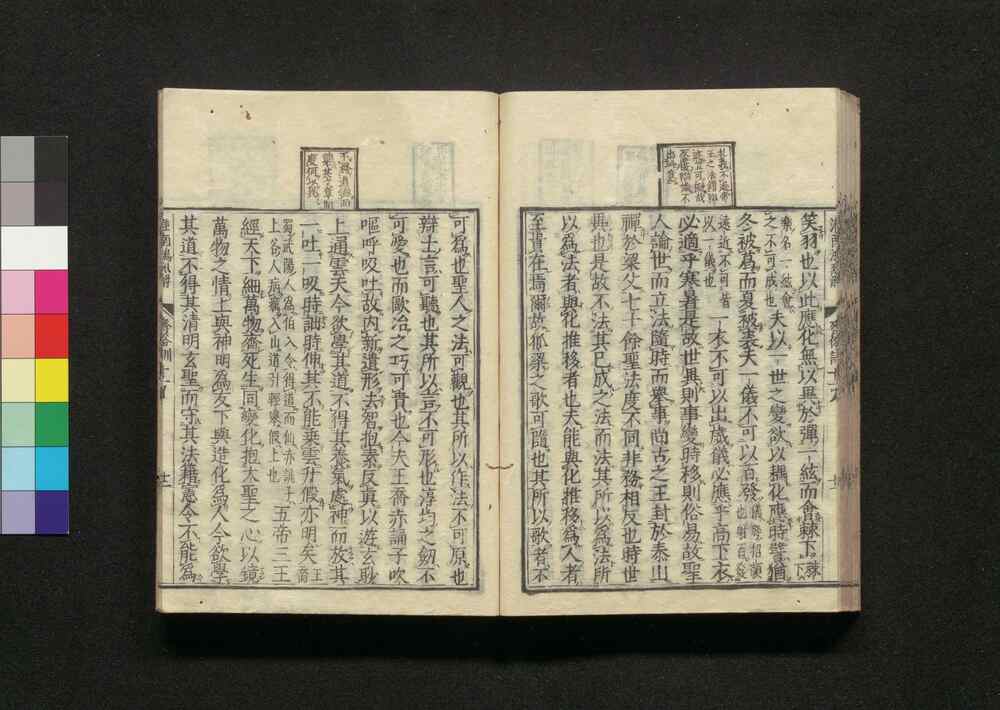 笑羽也以此應化無以異於彈一絃而會棘下棘下
樂名一絃會
之不可成也夫以一世之變欲以耦化應時譬猶
冬被葛而夏被裘夫一儀不可以百發儀弩招頭
也射百發
遠近不可皆
以一儀也一衣不可以出歲儀必應乎高下衣
必適乎寒暑是故世異則事變時移則俗易故聖
人論世而立法隨時而舉事尚古之王封於泰山
禪於梁父七十餘聖法度不同非務相反也時世
異也是故不法其已成之法而法其所以爲法所
以爲法者與化推移者也夫能與化推移爲人者
至貴在焉爾故狐梁之歌可隨也其所以歌者不
可爲也聖人之法可觀也其所以作法不可原也
辯士言可聽也其所以言不可形也淳均之劒不
可愛也而歐冶之巧可貴也今夫王喬赤誦子吹
嘔呼吸吐故内新遺形去智抱素反眞以遊玄眇
上通雲天今欲學其道不得其養氣處神而放其
一吐一吸時詘時伸其不能乘雲升假亦明矣王喬
蜀武陽人爲栢人令得道而仙赤誦子
上谷人病癘入山道引輕舉假上也五帝三王
輕天下細萬物齊死生同變化抱大聖之心以鏡
萬物之情上與神明爲友下與造化爲人今欲學
其道不得其清明玄聖而守其法籍憲令不能爲